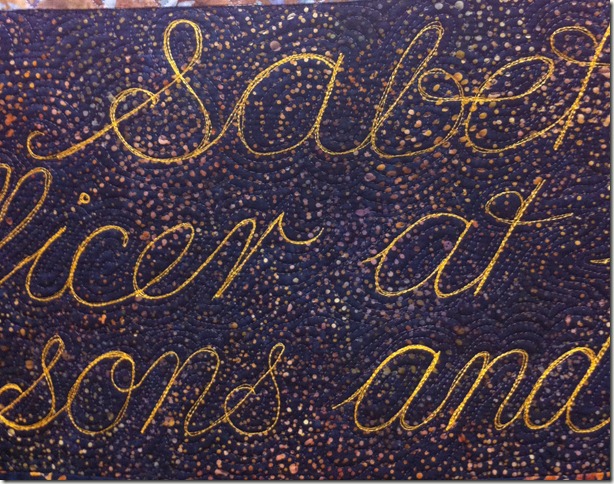 Sabet
ficer at
sons and